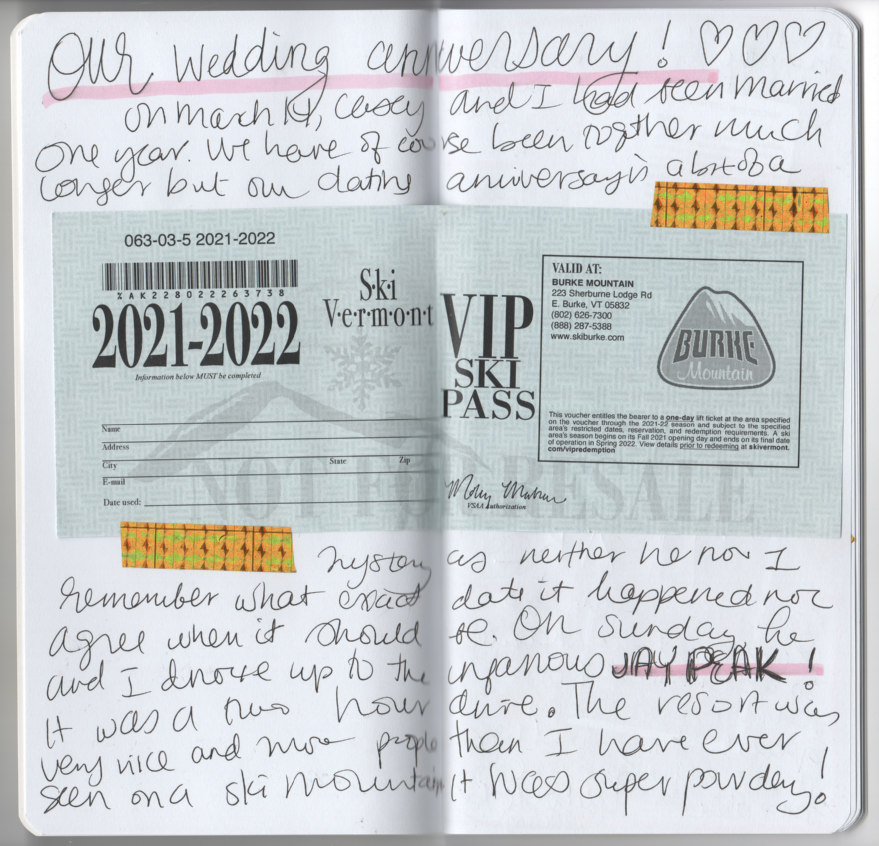 Our wedding anniversary! ♡♡♡
on march 14, Casey and I had been married
one year. We have of course been together much
longer but our dating anniversay is a bit of a
063-03-5 2021-2022
%AK228022263738
2021-2022
Information below MUST be completed
Ski
V•e•r•m•o•n•t
Name
Address
City State Zip
E-mail
Date used:
VIP
SKI
PASS
VSAA Authorization
VALID AT:
BURKE MOUNTAIN
223 Sherburne Lodge Rd
E. Burke, VT 05832
(802) 626-7300
(888) 287-5388
www.skiburke.com
BURKE
Mountain
This voucher entitles the bearer to a one-day lift ticket at the area specified
on the voucher through the 2021-22 season and subject to the specified
area's restricted dates, reservation, and redemption requirements. A ski
area's season begins on its Fall 2021 opening day and ends on its final date
of operation in Spring 2022. View details prior to redeeming at skivermont.
com/vipredemption
NOT FOR RESALE
hystery as neither he nor I
remember what exact date it happened nor
agree when it should be. On sunday, he
and I drove up to the infamous JAY PEAK!
It was a two hour drive. The resort was
very nice and more people then I have ever
seen on a ski mountain. It was super powdery!